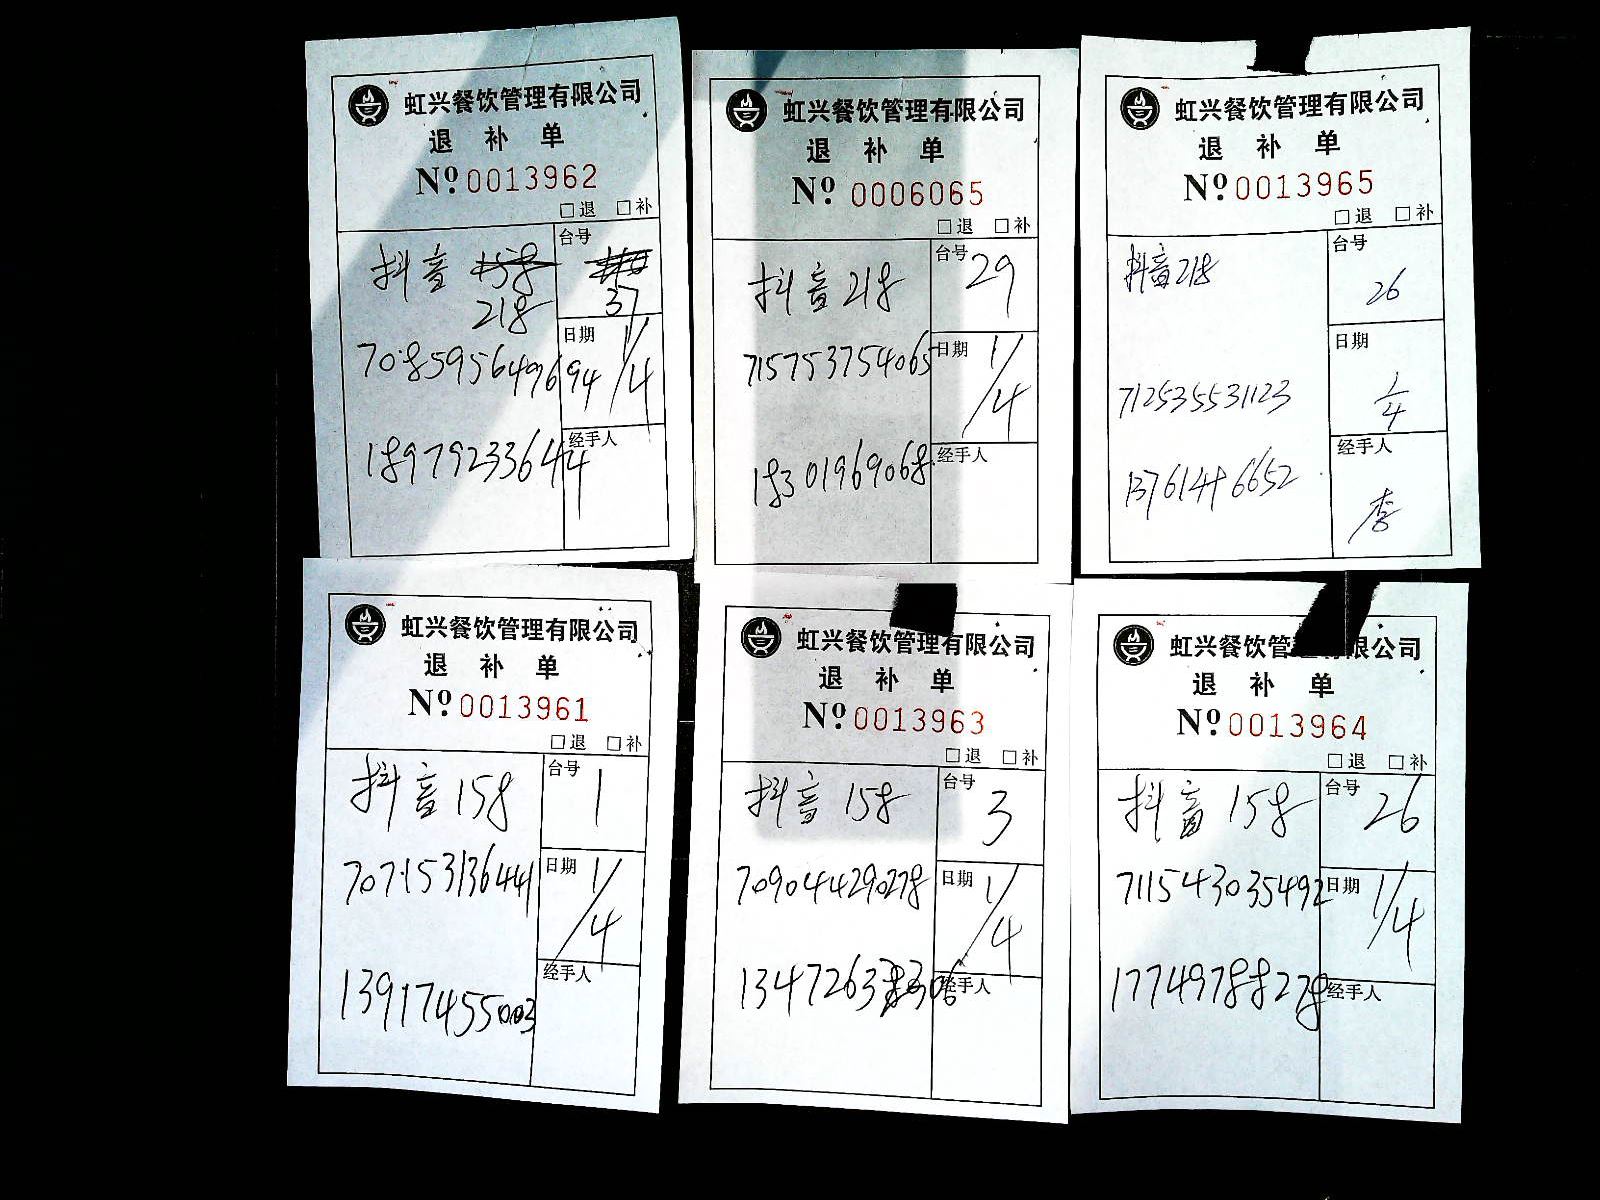 虹兴餐饮管理有限公司
退 补 单
Nº.0013962
□退 □补
抖音 218
台号
37
日期
1/4
70859564969４
18979233644
经手人
虹兴餐饮管理有限公司
退 补 单
Nº.0006065
□退 □补
抖音218
台号
29
日期
1/4
715753754065
18301969068
经手人
虹兴餐饮管理有限公司
退 补 单
Nº.0013965
□退 □补
抖音218
台号
26
日期
1/4
712535531123
13761446652
经手人
李
虹兴餐饮管理有限公司
退 补 单
Nº.0013961
□退 □补
抖音158
台号
1
日期
1/4
707153136441
13917455003
经手人
虹兴餐饮管理有限公司
退 补 单
Nº.0013963
□退 □补
抖音158
台号
3
日期
1/4
709044290278
经手人
虹兴餐饮管理有限公司
退 补 单
Nº.0013964
□退 □补
抖音158
台号
26
日期
1/4
711543035492
17749788278
经手人